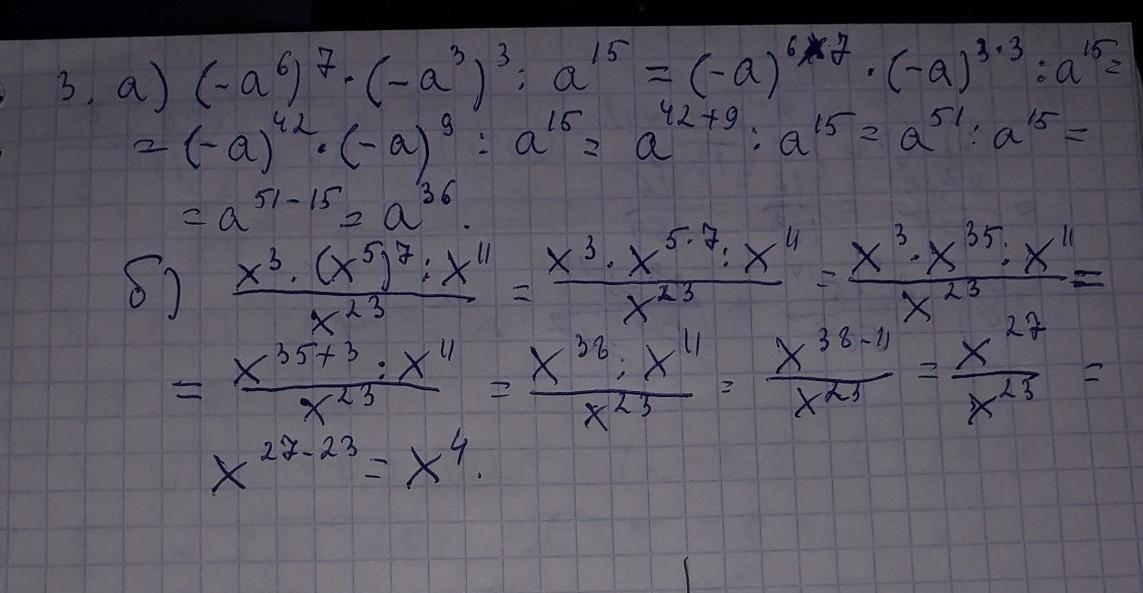 3. а) (-a⁶)⁷ · (-a³)³ : a¹⁵ = (-a)⁶˙⁷ · (-a)³˙³ : a¹⁵ =
= (-a)⁴² · (-a)⁹ : a¹⁵ = a⁴²⁺⁹ : a¹⁵ = a⁵¹ : a¹⁵ =
= a⁵¹⁻¹⁵ = a³⁶.
б) (x³ · (x⁵)⁷ : x¹¹)/x²³ = (x³ · x⁵˙⁷ : x¹¹)/x²³ = (x³ · x³⁵ : x¹¹)/x²³ =
= (x³⁵⁺³ : x¹¹)/x²³ = (x³⁸ : x¹¹)/x²³ = x³⁸⁻¹¹/x²³ = x²⁷/x²³ =
x²⁷⁻²³ = x⁴.